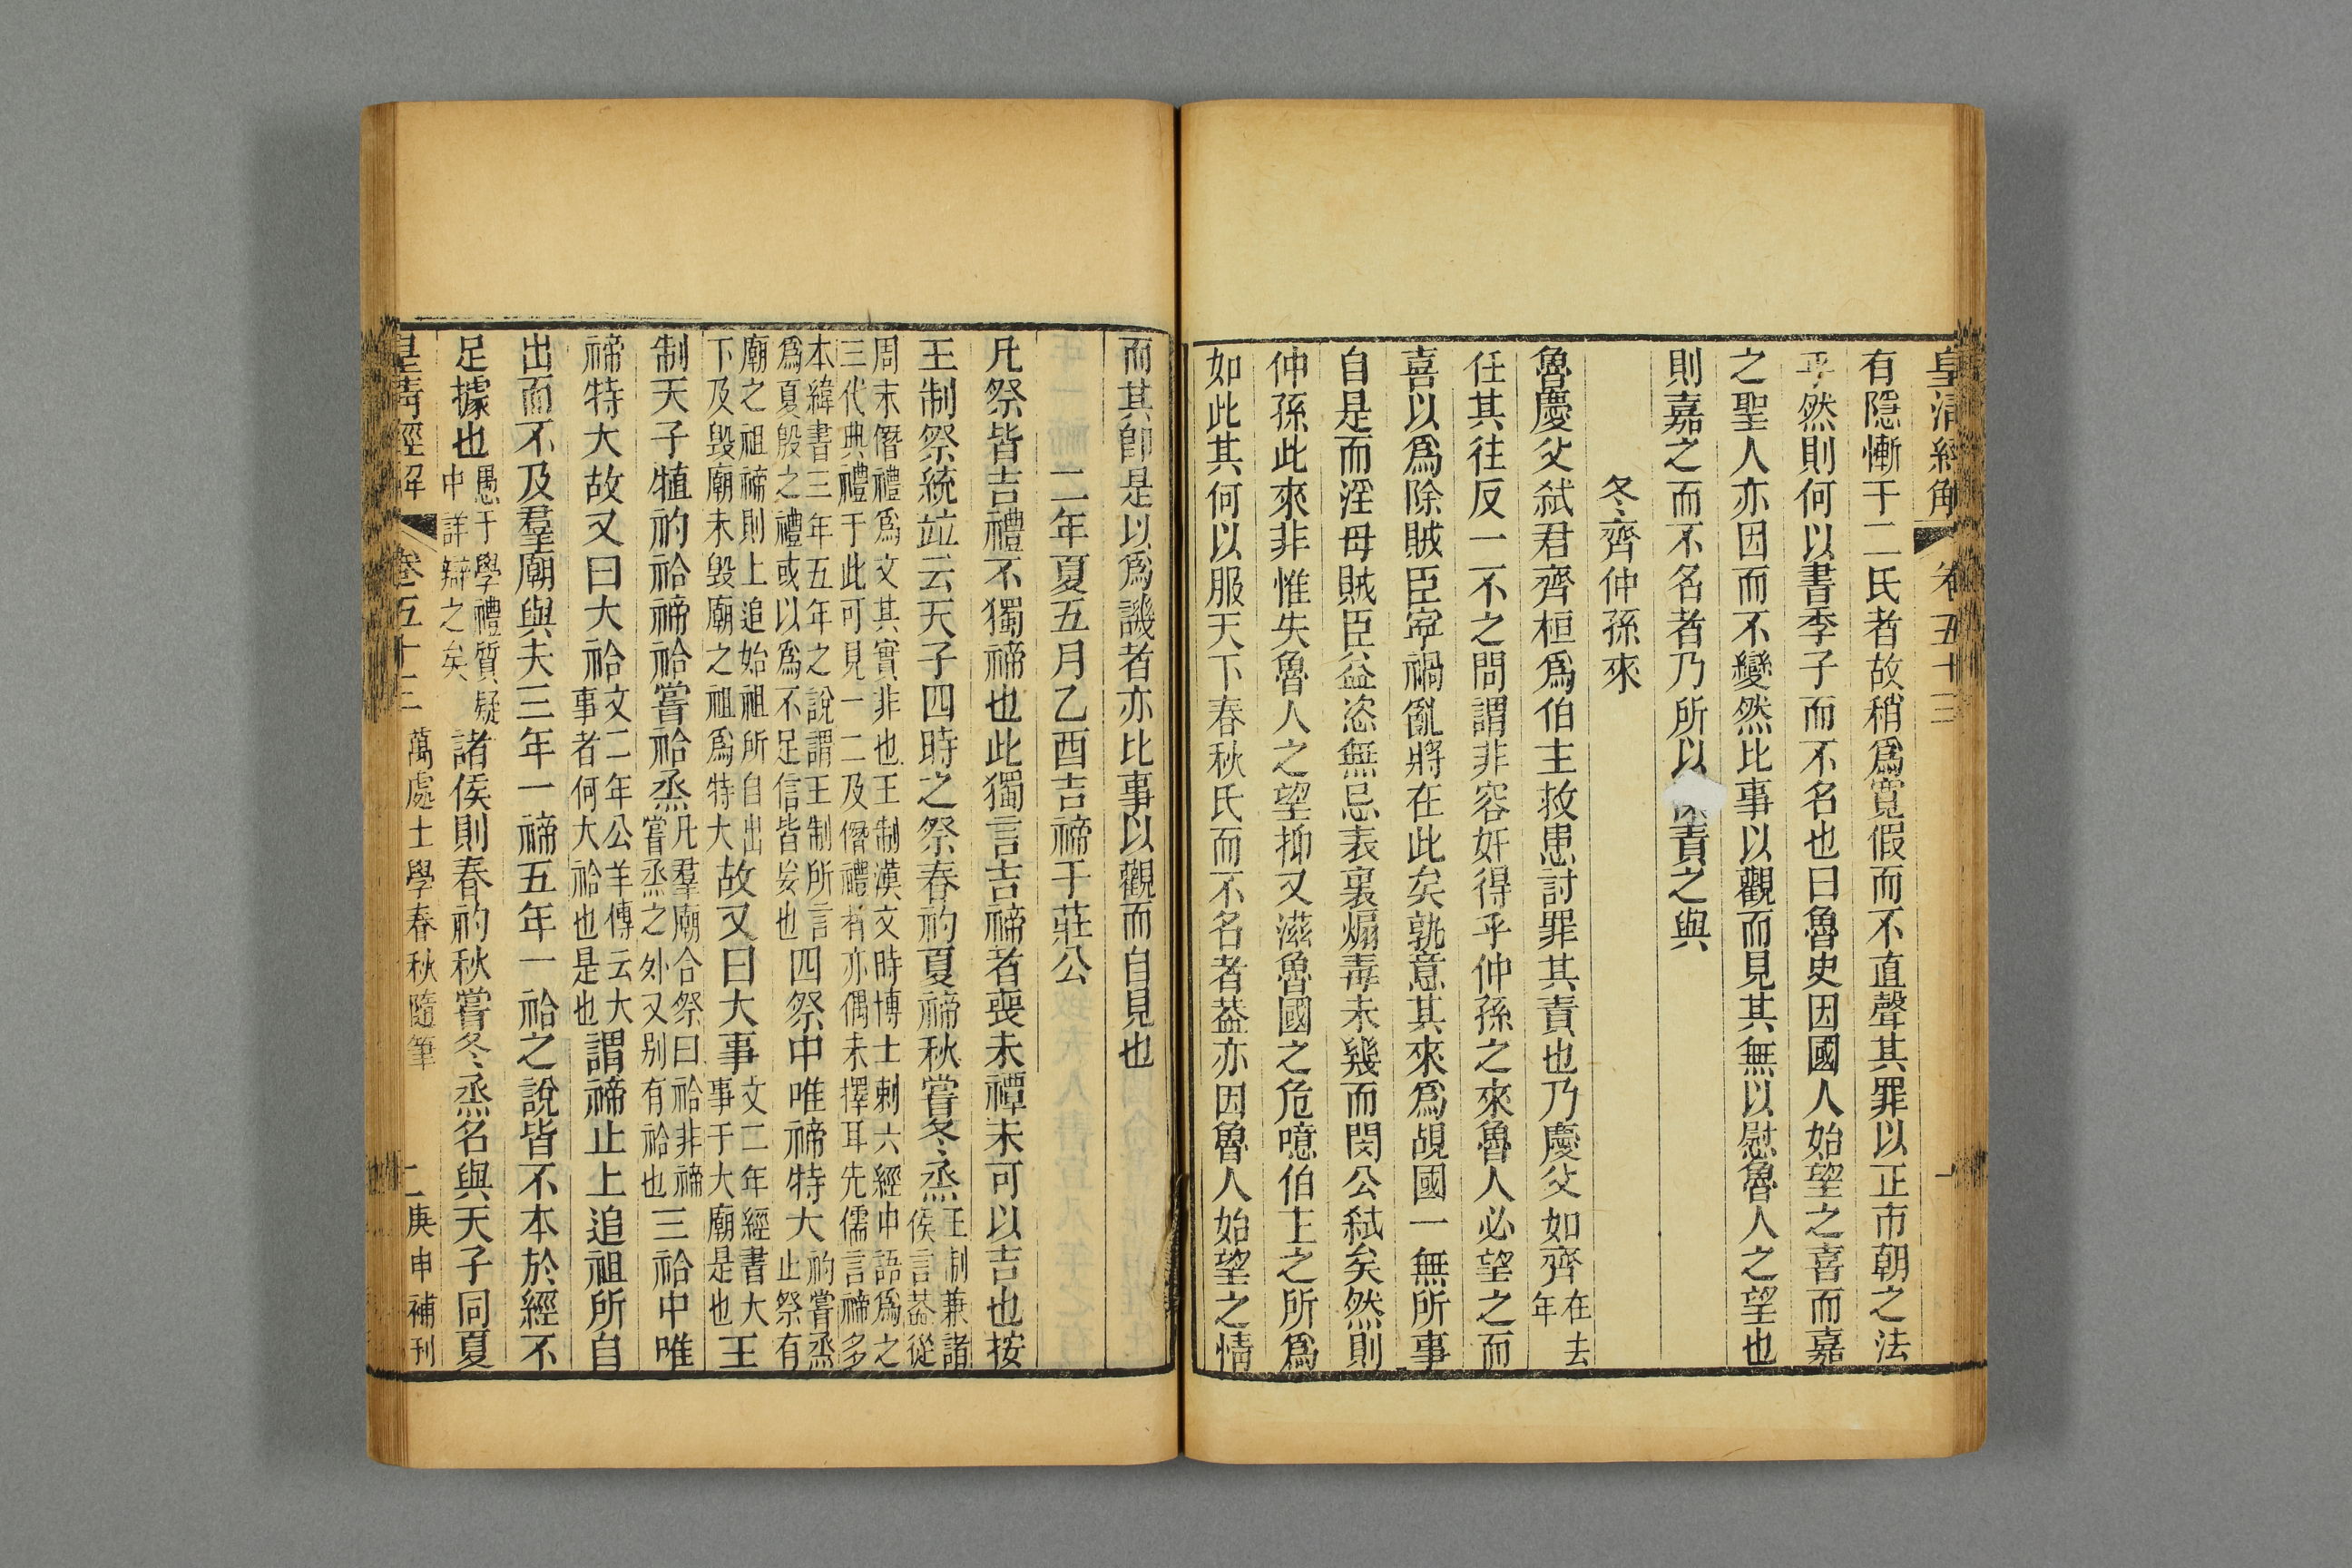 皇清經解 卷五十三 一
有隱慚于二氏者故稍爲寬假而不直聲其罪以正市朝之法
乎然則何以書季子而不名也曰魯史因國人始望之喜而嘉
之聖人亦因而不變然比事以觀而見其無以慰魯人之望也
則嘉之而不名者乃所以 責之與
冬齊仲孫來
魯慶父弒君齊桓爲伯主救患討罪其責也乃慶父如齊在去年
任其往反一不之問謂非容奸得乎仲孫之來魯人必望之而
喜以爲除賊臣寧禍亂將在此矣孰意其來爲覘國一無所事
自是而淫母賊臣益恣無忌表裏煽毒未幾而閔公弒矣然則
仲孫此來非惟失魯人之望抑又滋魯國之危噫伯主之所爲
如此其何以服天下春秋氏而不名者葢亦因魯人始望之情
而其卽是以爲譏者亦比事以觀而自見也
二年夏五月乙酉吉禘于莊公
凡祭皆吉禮不獨禘也此獨言吉禘者喪未禫未可以吉也按
王制祭統竝云天子四時之祭春礿夏禘秋嘗冬烝王制兼諸侯言葢從
周末僭禮爲文其實非也王制漢文時博士刺六經中語爲之
三代典禮于此可見一二及僭禮者亦偶未擇耳先儒言禘多
本緯書三年五年之說謂王制所言
爲夏殷之禮或以爲不足信皆妄也四祭中唯禘特大礿嘗烝止祭有
廟之祖禘則上追始祖所自出
下及毀廟未毀廟之祖爲特大故又曰大事文二年經書大事于大廟是也王
制天子犆礿祫禘祫嘗祫烝凡羣廟合祭曰祫非禘嘗烝之外又别有祫也三祫中唯
禘特大故又曰大祫文二年公羊傳云大事者何大祫也是也謂禘止上追祖所自
出而不及羣廟與夫三年一禘五年一祫之說皆不本於經不
足據也愚于學禮質疑中詳辯之矣諸侯則春礿秋嘗冬烝名與天子同夏
皇清經解 卷五十三 萬處士學春秋隨筆 二 庚申補刊